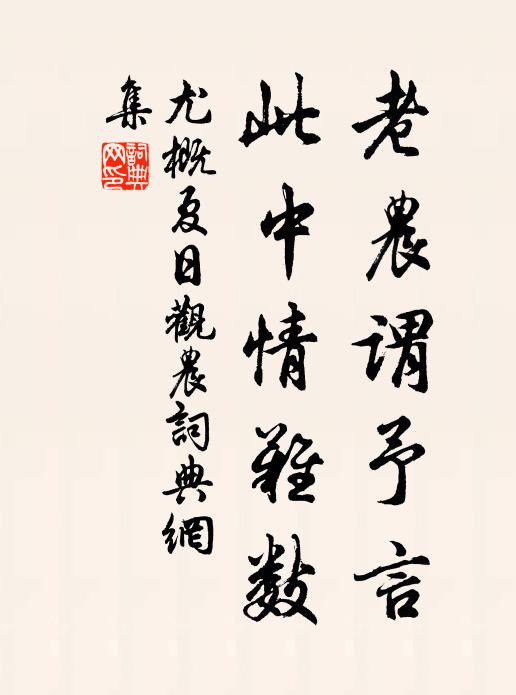 老農謂予言
此中情難数
尤概夏日觀農詞典網
集
詞典網印